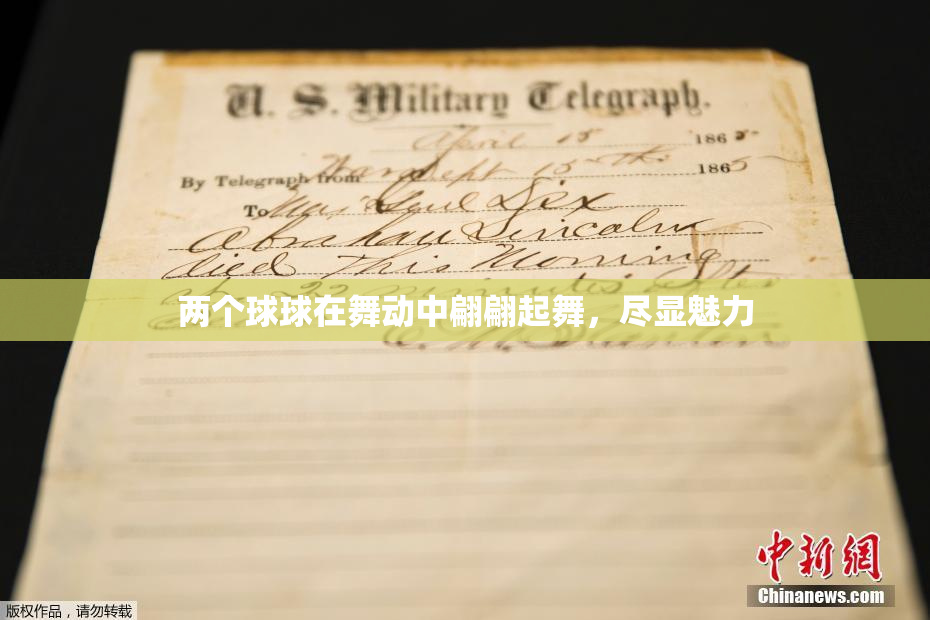 U. S. Military Telegraph.
April 15 1865
By Telegraph from War Dept 15th 1865
To Maj Genl Dix
Abraham Lincoln
died This Morning
at 22 minutes after
两个球球在舞动中翩翩起舞，尽显魅力
E. M. Stanton
中新網
Chinanews.com
版权作品，请勿转载